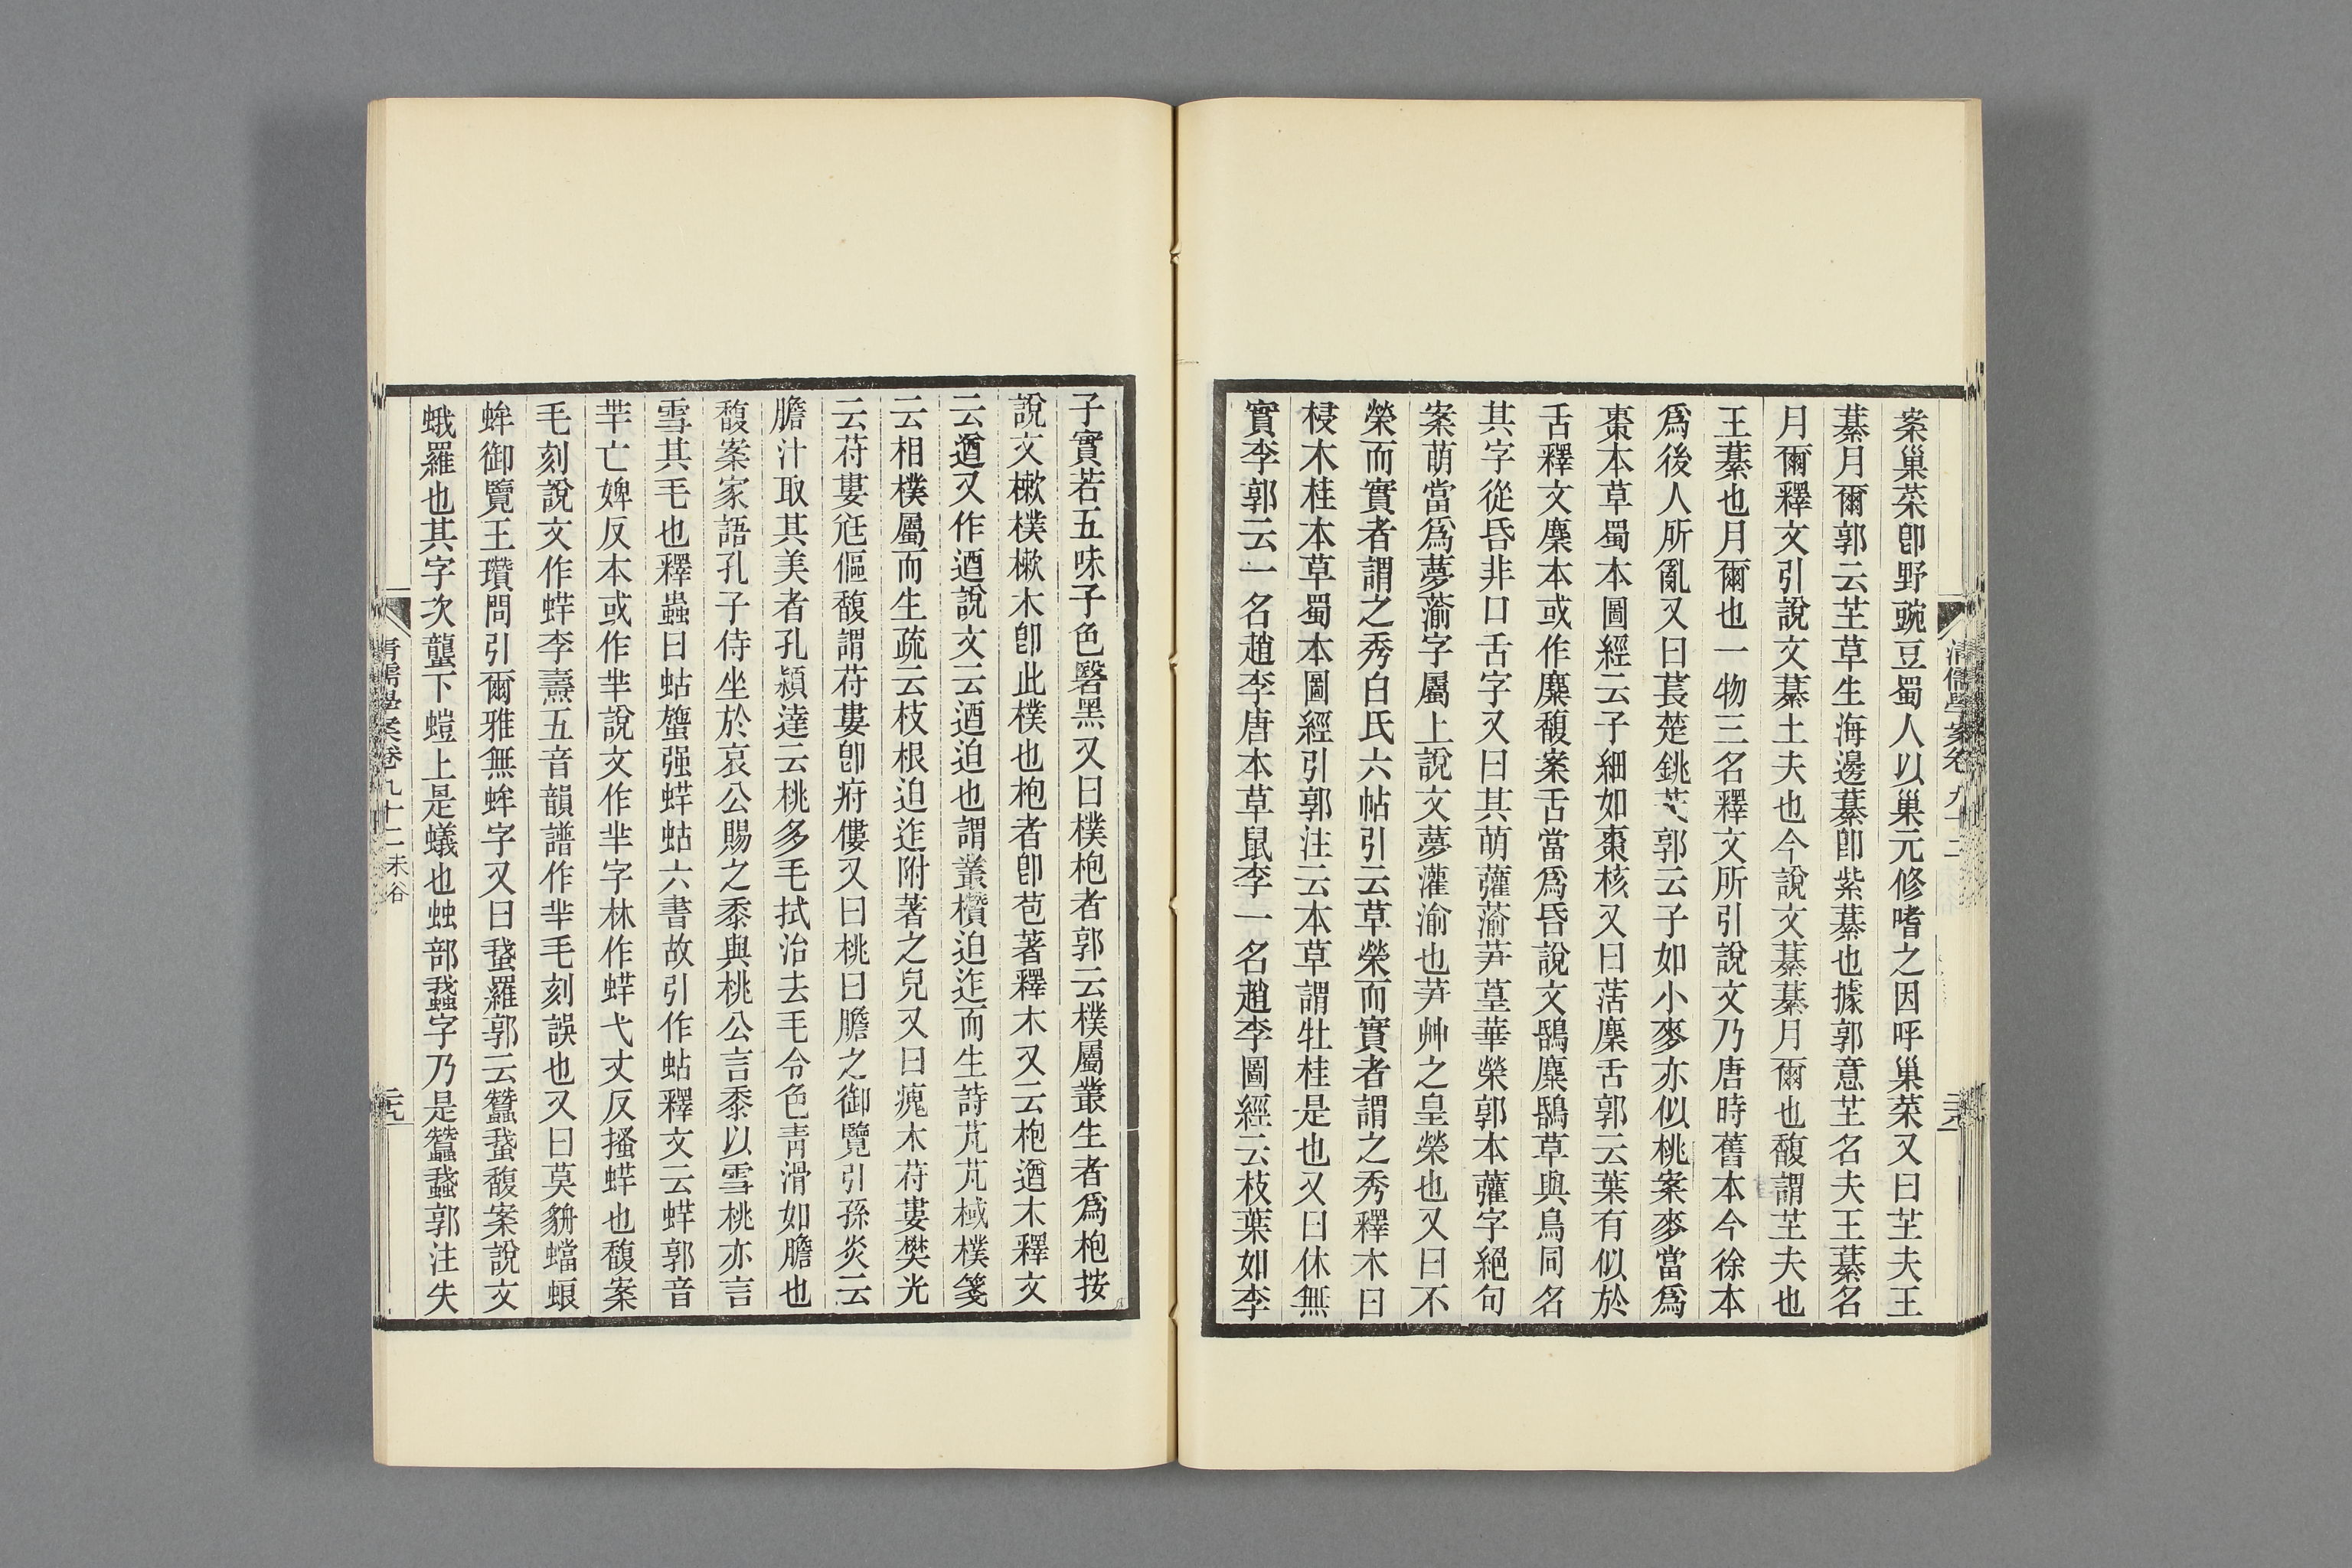 案巢菜卽野豌豆蜀人以巢元修嗜之因呼巢菜又曰芏夫王
藄月爾郭云芏草生海邊藄卽紫藄也據郭意芏名夫王藄名
月爾釋文引說文藄土夫也今說文藄藄月爾也馥謂芏夫也
王藄也月爾也一物三名釋文所引說文乃唐時舊本今徐本
爲後人所亂又曰萇楚銚芅郭云子如小麥亦似桃案麥當爲
棗本草蜀本圖經云子細如棗核又曰萿麇舌郭云葉有似於
舌釋文麇本或作麋馥案舌當爲昏說文鴰麋鴰草與鳥同名
其字從昏非口舌字又曰其萌虇蕍芛葟華榮郭本虇字絕句
案萌當爲夢蕍字屬上說文夢灌渝也芛艸之皇榮也又曰不
榮而實者謂之秀白氏六帖引云草榮而實者謂之秀釋木曰
梫木桂本草蜀本圖經引郭注云本草謂牡桂是也又曰休無
實李郭云一名趙李唐本草鼠李一名趙李圖經云枝葉如李
子實若五味子色瑿黑又曰樸枹者郭云樸屬叢生者爲枹按
說文樕樸樕木卽此樸也枹者卽苞著釋木又云枹遒木釋文
云遒又作逎說文云逎迫也謂叢欑迫迮而生詩芃芃棫樸箋
云相樸屬而生疏云枝根迫迮附著之皃又曰瘣木苻婁樊光
云苻婁尪傴馥謂苻婁卽府僂又曰桃曰膽之御覽引孫炎云
膽汁取其美者孔穎達云桃多毛拭治去毛令色青滑如膽也
馥案家語孔子侍坐於哀公賜之黍與桃公言黍以雪桃亦言
雪其毛也釋蟲曰蛄䗐强蛘蛄六書故引作蛅釋文云蛘郭音
羋亡婢反本或作芈說文作芈字林作蛘弋丈反搔蛘也馥案
毛刻說文作蛘李燾五音韻譜作芈毛刻誤也又曰莫貈蟷蜋
蛑御覽王瓚問引爾雅無蛑字又曰蛬羅郭云蠶蛬馥案說文
蛾羅也其字次蠪下螘上是蟻也䖵部䖸字乃是蠶䖸郭注失
清儒學案卷九十二
清儒學案卷九十二未谷